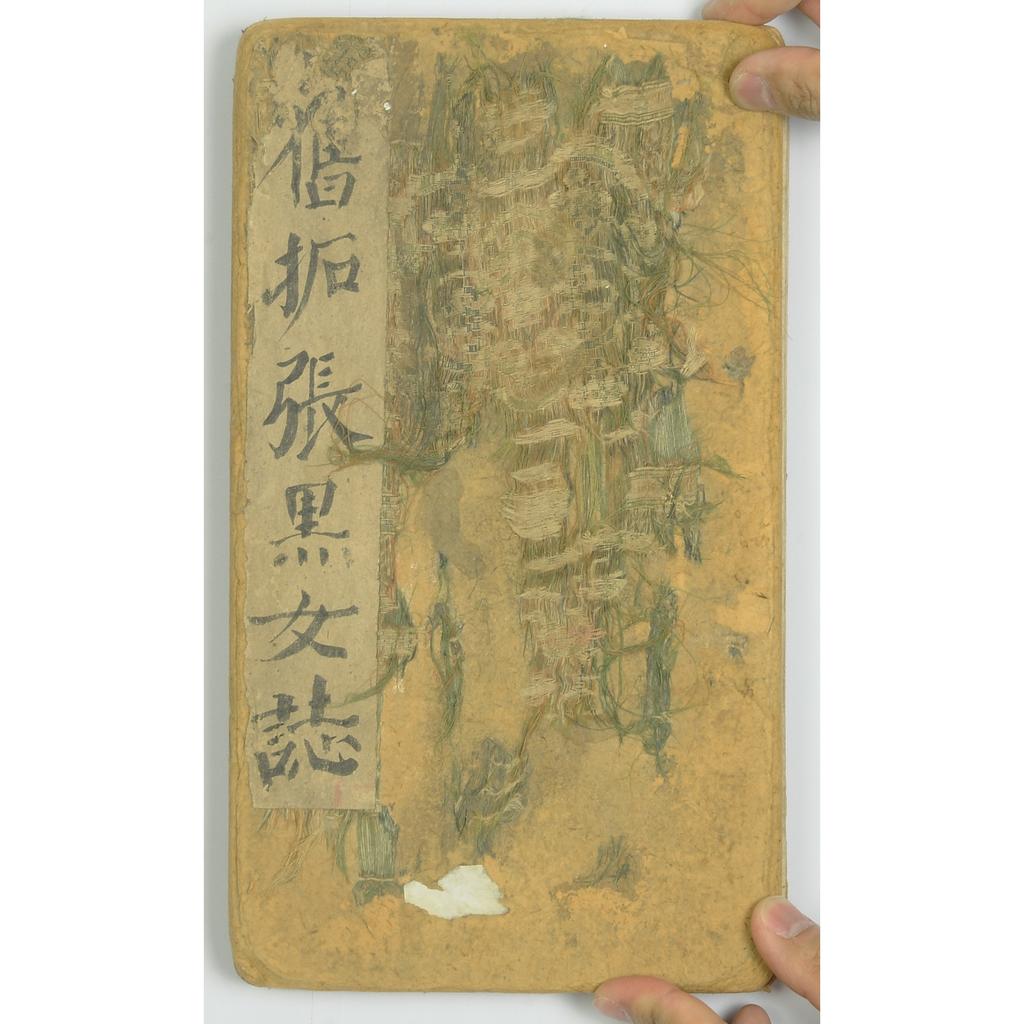 舊拓張黑女誌